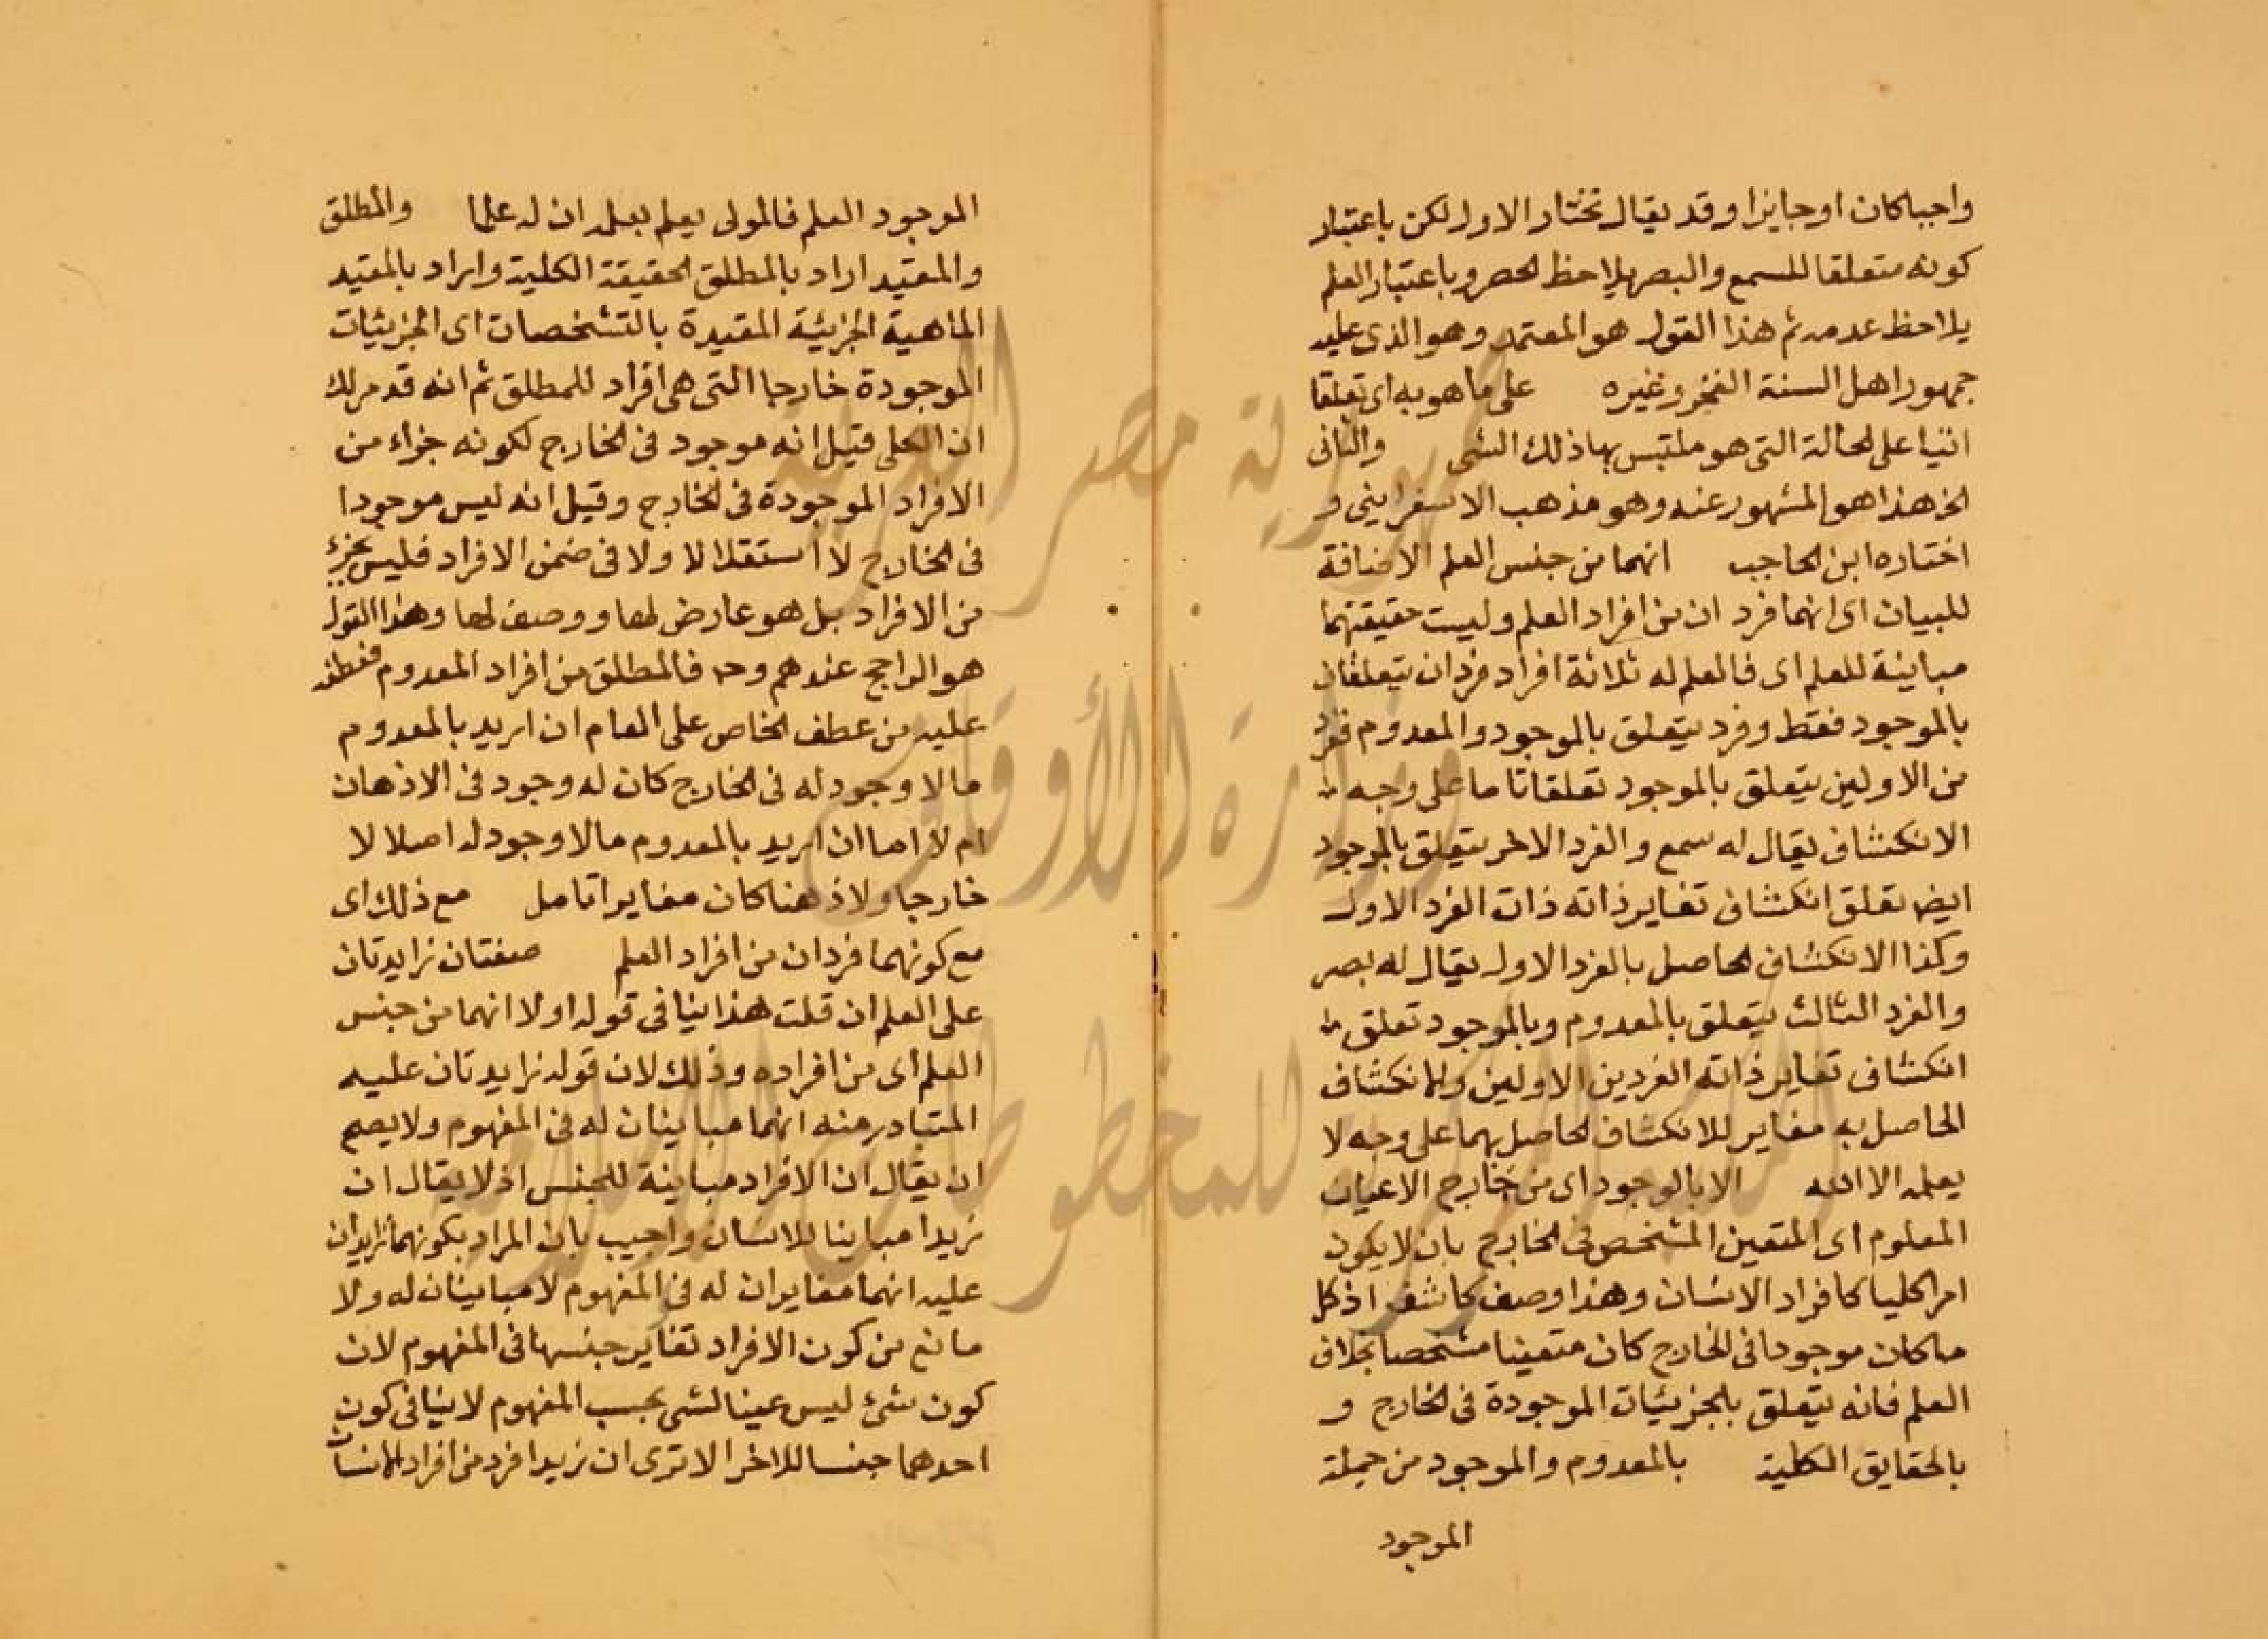 واجبا كان او جايزا وقد يقال نختار الاول لكن باعتبار
كونه متعلقا للسمع والبصر يلاحظ الحصر وباعتبار العلم
يلاحظ عدمه ثم هذا القول هو المعتمد وهو الذي عليه
جمهور اهل السنة الفخر وغيره على ما هو به اى تعلقا
اتيا على الحالة التى هو ملتبس بها ذلك الشى والثانى
الخ هذا هو المشهور عنه وهو مذهب الاسفراينى و
اختاره ابن الحاجب انهما من جنس العلم الاضافة
للبيان اى انهما فردان من افراد العلم وليست حقيقتهما
مباينة للعلم اى فالعلم له ثلاثة افراد فردان يتعلقان
بالموجود فقط وفرد يتعلق بالموجود والمعدوم ففرد
من الاولين يتعلق بالموجود تعلقا تاما على وجه
الانكشاف يقال له سمع والفرد الاخر يتعلق بالموجود
ايضا تعلق انكشاف تغاير ذاته ذات الفرد الاول
وكذا الانكشاف الحاصل بالفرد الاول يقال له بصر
والفرد الثالث يتعلق بالمعدوم وبالموجود تعلق
انكشاف تغاير ذاته الفردين الاولين والانكشاف
الحاصل به مغاير للانكشاف الحاصل بهما على وجه لا
يعلمه الا الله الا بالوجود اى من خارج الاعيان
المعلوم اى المتعين المشخص فى الخارج بان لا يكون
امرا كليا كافراد الانسان وهذا وصف كاشف اذ كل
ما كان موجودا فى الخارج كان متعينا مشخصا بخلاف
العلم فانه يتعلق بالجزئيات الموجودة فى الخارج و
بالحقايق الكلية بالمعدوم والموجود من جملة
الموجود
الموجود العلم فالمولى يعلم بعلمه ان له علما والمطلق
والمقيد اراد بالمطلق الحقيقة الكلية واراد بالمقيد
الماهية الجزئية المقيدة بالتشخصات اى الجزئيات
الموجودة خارجا التى هى افراد للمطلق ثم انه قد مر لك
ان الكلى قيل انه موجود فى الخارج لكونه جزاء من
الافراد الموجودة فى الخارج وقيل انه ليس موجودا
فى الخارج لا استقلالا ولا فى ضمن الافراد فليس بجزء
من الافراد بل هو عارض لها ووصف لها وهذا القول
هو الراجح عندهم وح فالمطلق من افراد المعدوم فعطفه
عليه من عطف الخاص على العام ان اريد بالمعدوم
ما لا وجود له فى الخارج كان له وجود فى الاذهان
ام لا اما ان اريد بالمعدوم ما لا وجود له اصلا لا
خارجا ولا ذهنا كان مغايرا تامل مع ذلك اى
مع كونهما فردان من افراد العلم صفتان زايدتان
على العلم ان قلت هذا ينافى قوله اولا انهما من جنس
العلم اى من افراده وذلك لان قوله زايدتان عليه
المتبادر منه انهما مباينان له فى المفهوم ولا يصح
ان يقال ان الافراد مباينة للجنس اذ لا يقال ان
زيدا مباينا للانسان واجيب بان المراد بكونهما زايدان
عليه انهما مغايران له فى المفهوم لا مباينان له ولا
مانع من كون الافراد تغاير جنسها فى المفهوم لان
كون شئ ليس عينا لشى بحسب المفهوم لا ينافى كون
احدهما جنسا للاخر الا ترى ان زيدا فرد من افراد الانسان
جمهورية مصر العربية
وزارة الأوقاف
المكتبة المركزية للمخطوطات الإسلامية